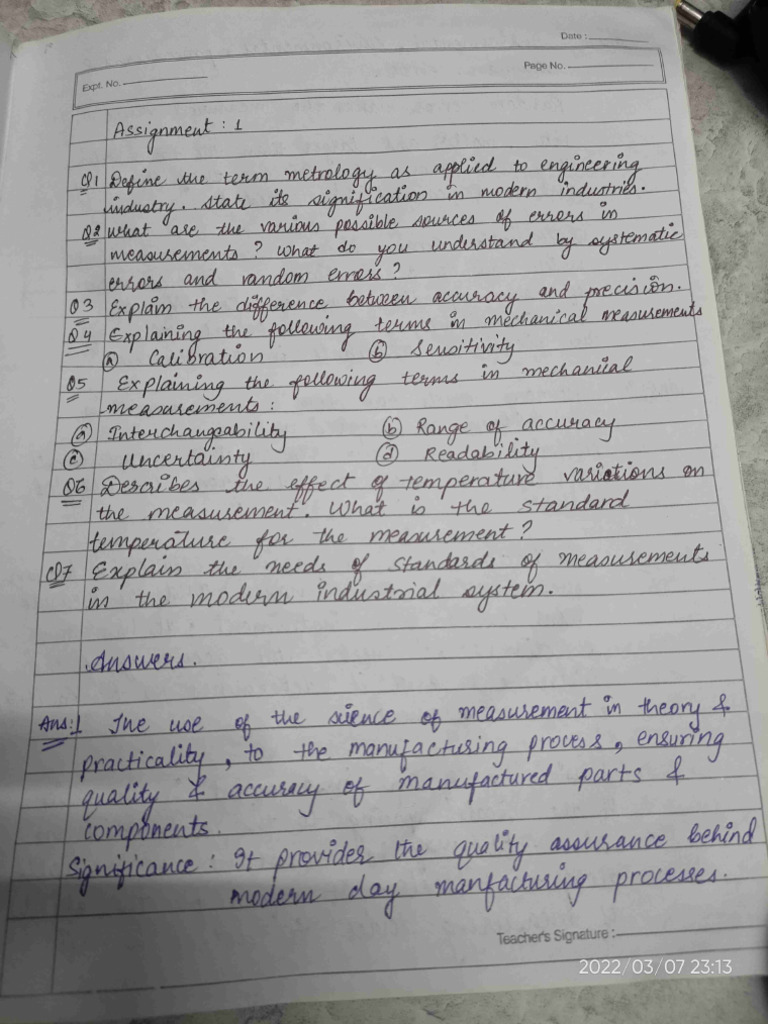 Date :
Expt. No.
Page No.
Assignment : 1
Q1 Define the term metrology as applied to engineering
industry. state its signification in modern industries.
Q2 what are the various possible sources of errors in
measurements ? what do you understand by systematic
errors and random errors ?
Q3 Explain the difference between accuracy and precision.
Q4 Explaining the following terms in mechanical measurements
(a) Calibration (b) Sensitivity
Q5 Explaining the following terms in mechanical
measurements :
(a) Interchangeability (b) Range of accuracy
(c) Uncertainty (d) Readability
Q6 Describes the effect of temperature variations on
the measurement. What is the standard
temperature for the measurement ?
Q7 Explain the needs of standards of measurements
in the modern industrial system.
Answers.
Ans:1 The use of the science of measurement in theory &
practicality, to the manufacturing process, ensuring
quality & accuracy of manufactured parts &
components.
Significance : It provides the quality assurance behind
modern day manfacturing processes.
Teacher's Signature :
2022/03/07 23:13